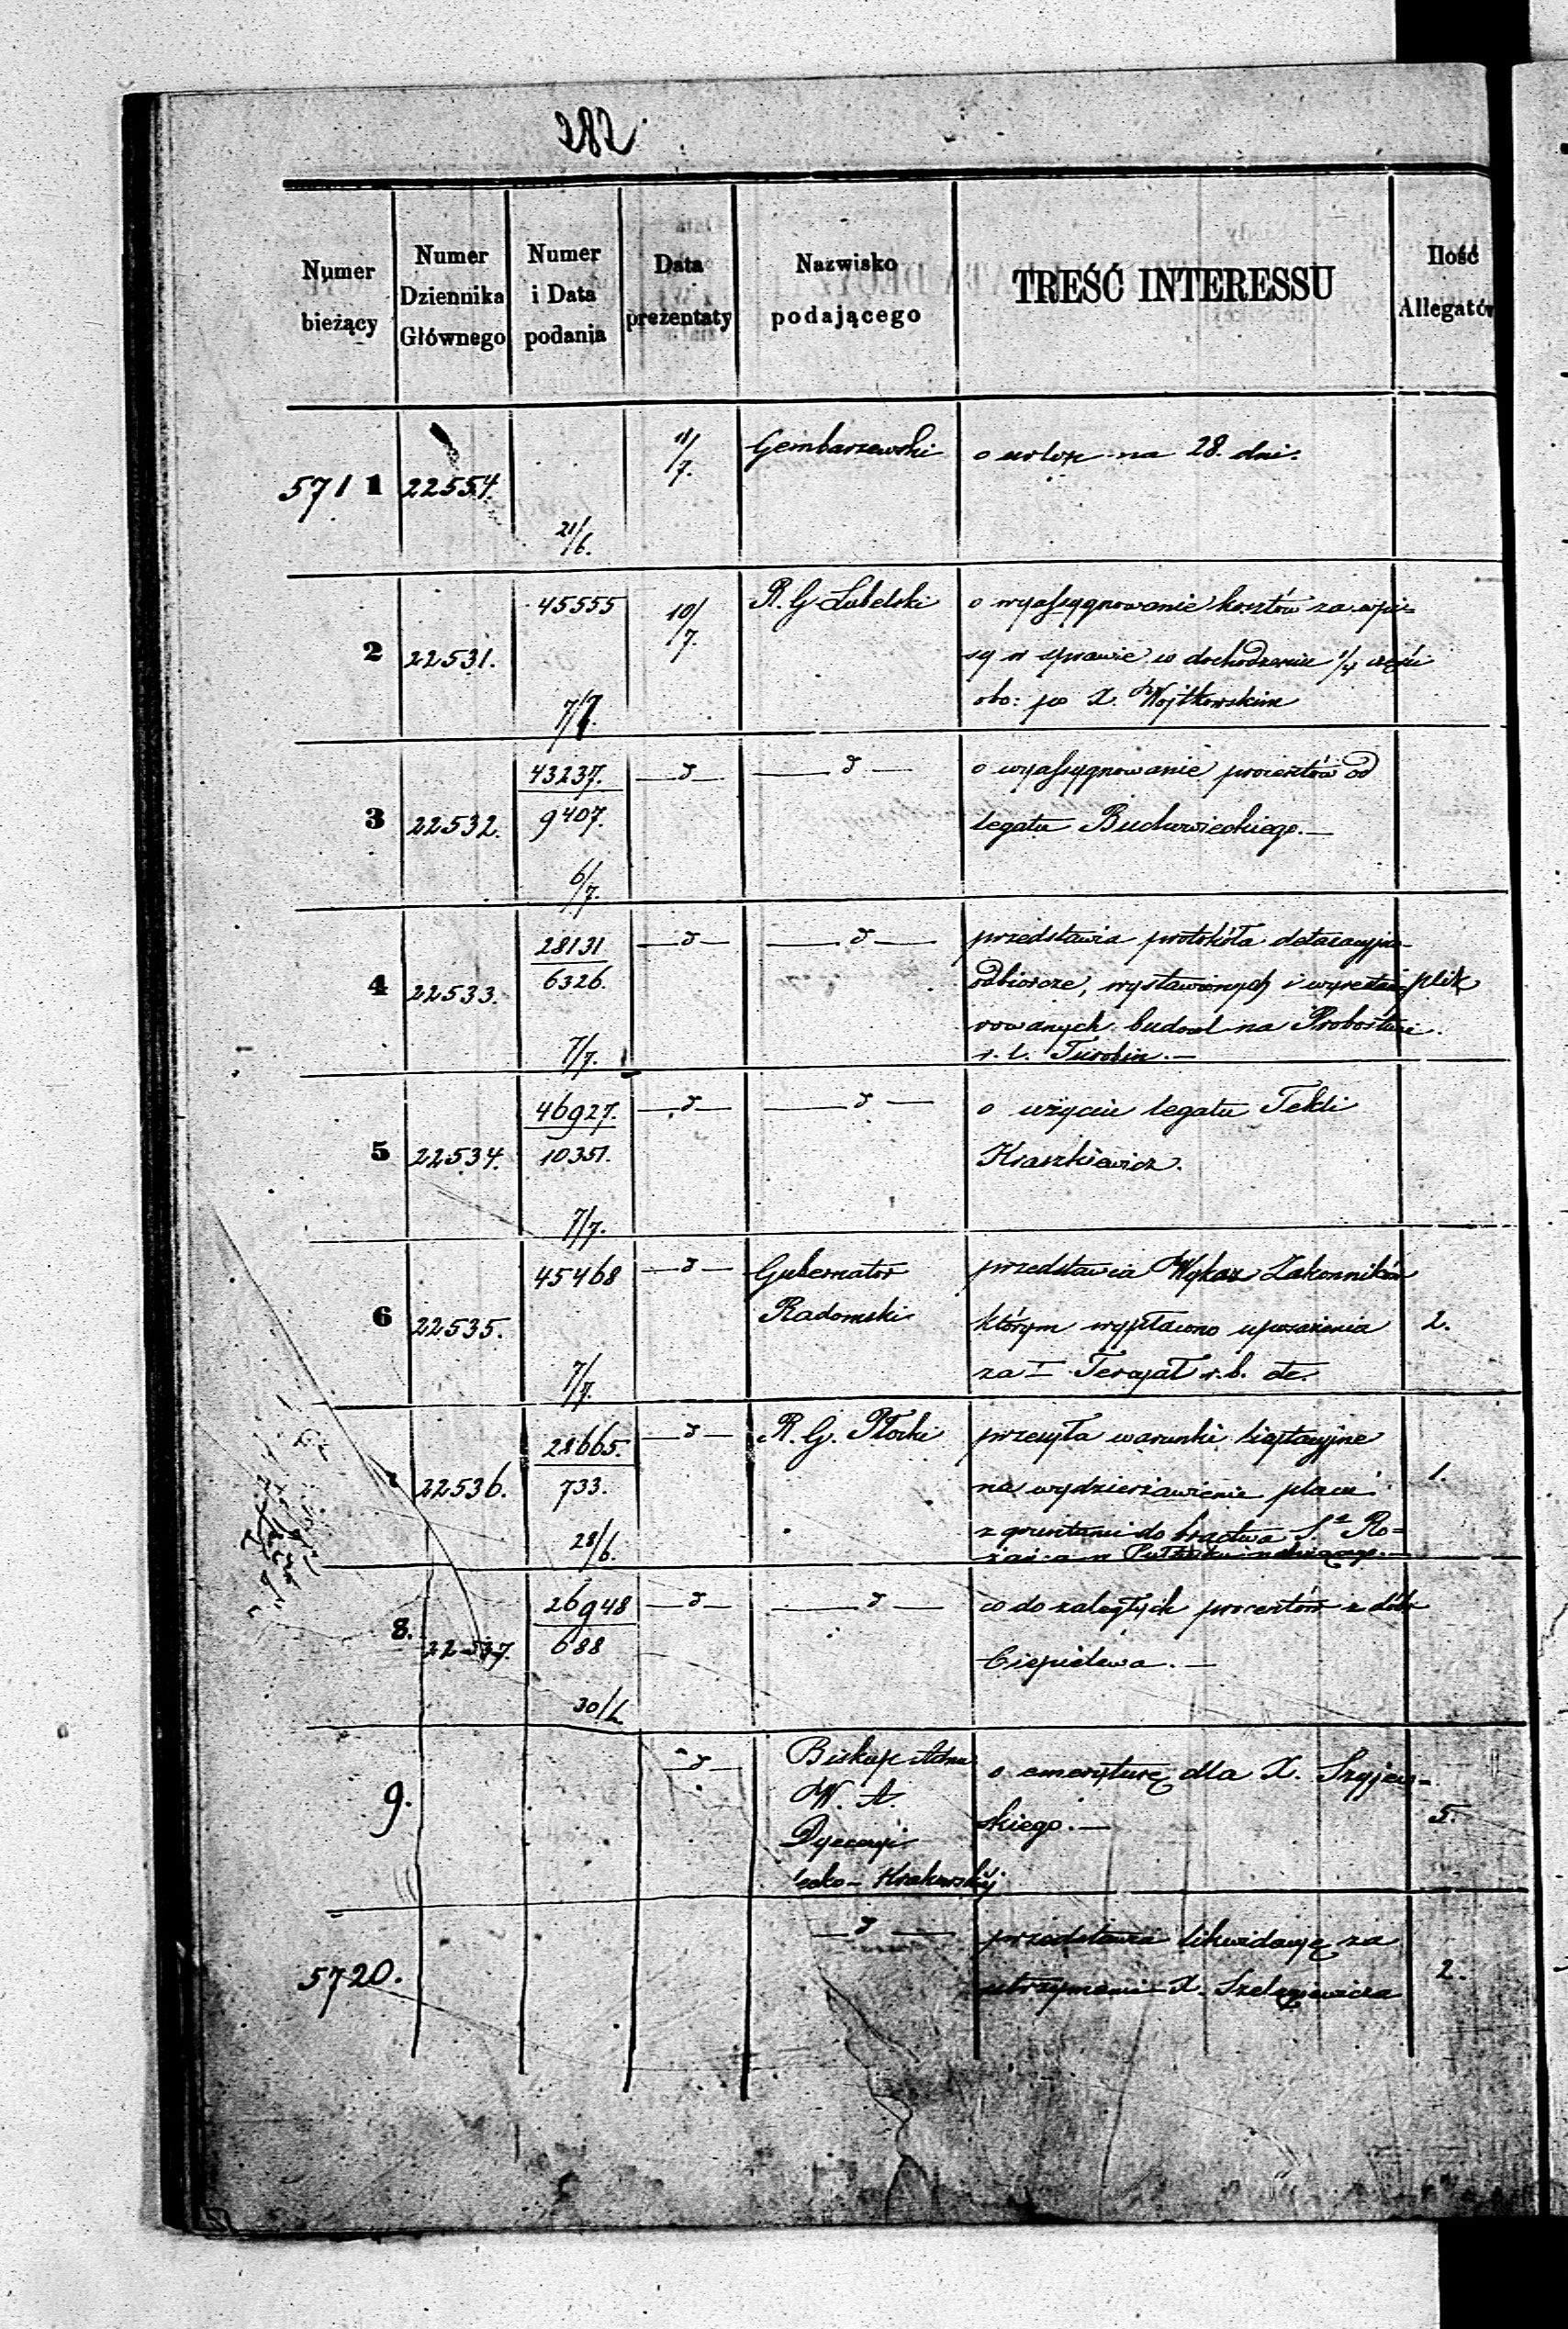 282
Numer bieżący | Numer Dziennika Głównego | Numer i Data podania | Data prezentaty | Nazwisko podającego | TREŚĆ INTERESSU | Ilość Allegatów
5711 | 22554. | 21/6. | 11/7. | Gembarzewski | o urlop na 28. dni.
2 | 22531. | 45555 7/7. | 10/7. | R. G Lubelski | o wyassygnowanie kosztów za wpi=
sy w sprawie o dochodzeniu 1/4 części
obo: po X. Wojtkowskim
3 | 22532. | 43237. 9407. 6/7. | —d— | —d— | o wyassygnowanie procentów od
legatu Buchowieckiego.—
4 | 22533. | 28131 6326. 7/7. | —d— | —d— | przedstawia protokóła detaxacyjno-
odbiorcze, wystawionych i wyrestau= | plik
rowanych budowl na Probostwie
r. l. Turobin.—
5 | 22534. | 46927. 10351. 7/7. | —d— | —d— | o użyciu legatu Tekli
Kraszkiewicz.
6 | 22535. | 45468 7/7. | —d— | Gubernator
Radomski | przedstawia Wykaz Zakonników
którym wypłacono uposażenia | 2.
za I Terczał r.b. etc.
22536. | 28665. 733. 28/6. | —d— | R. G. Płocki | przesyła warunki licytacyjne
na wydzierżawienie placu | 1.
z gruntami do bractwa S. Ro=
żańca w Pułtusku należącego.—
8. | 22537. | 26948 688 30/6. | —d— | —d— | co do zaległych procentów z dóbr
Ciepielewa.—
9. | —d— | Biskup Adm
W. A.
Dyecezyi
lecko-Krakowskiéj | o emeryturę dla X. Szyjew=
skiego.— | 5.
5720. | —d— | przedstawia likwidacyę za
utrzymanie X. | 2.